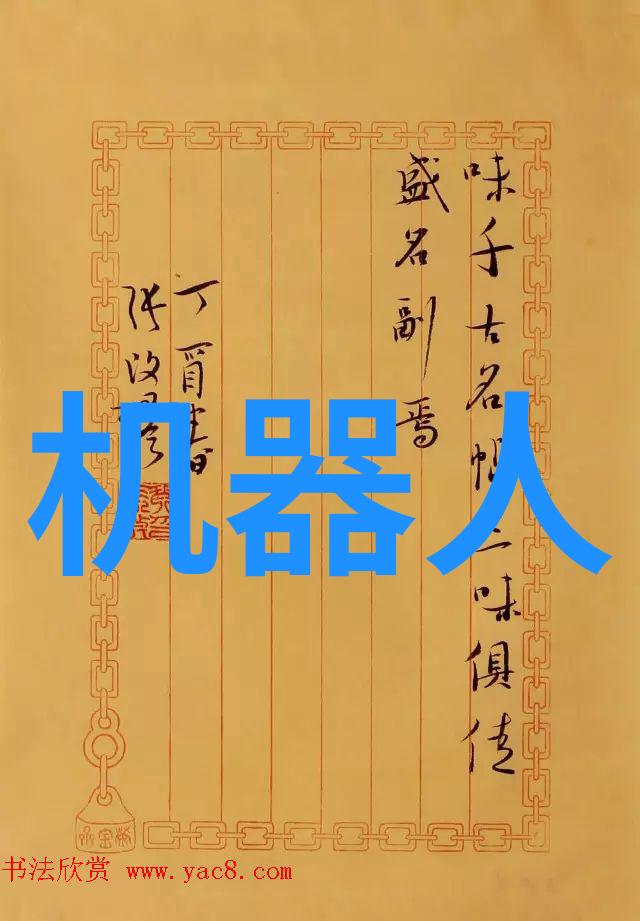 味千古名二味俱佳
盛名副焉
丁酉春日
张改琴
机器人
书法欣赏 www.yac8.com